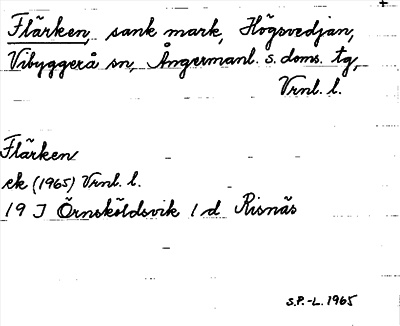 Flärken, sank mark, Högsvedjan,
Vibyggerå sn, Ångermanl. s. doms. tg,
Vrnl. l.
Flärken
ek (1965) Vrnl. l.
19 J Örnsköldsvik 1 d Risnäs
S.P.-L. 1965